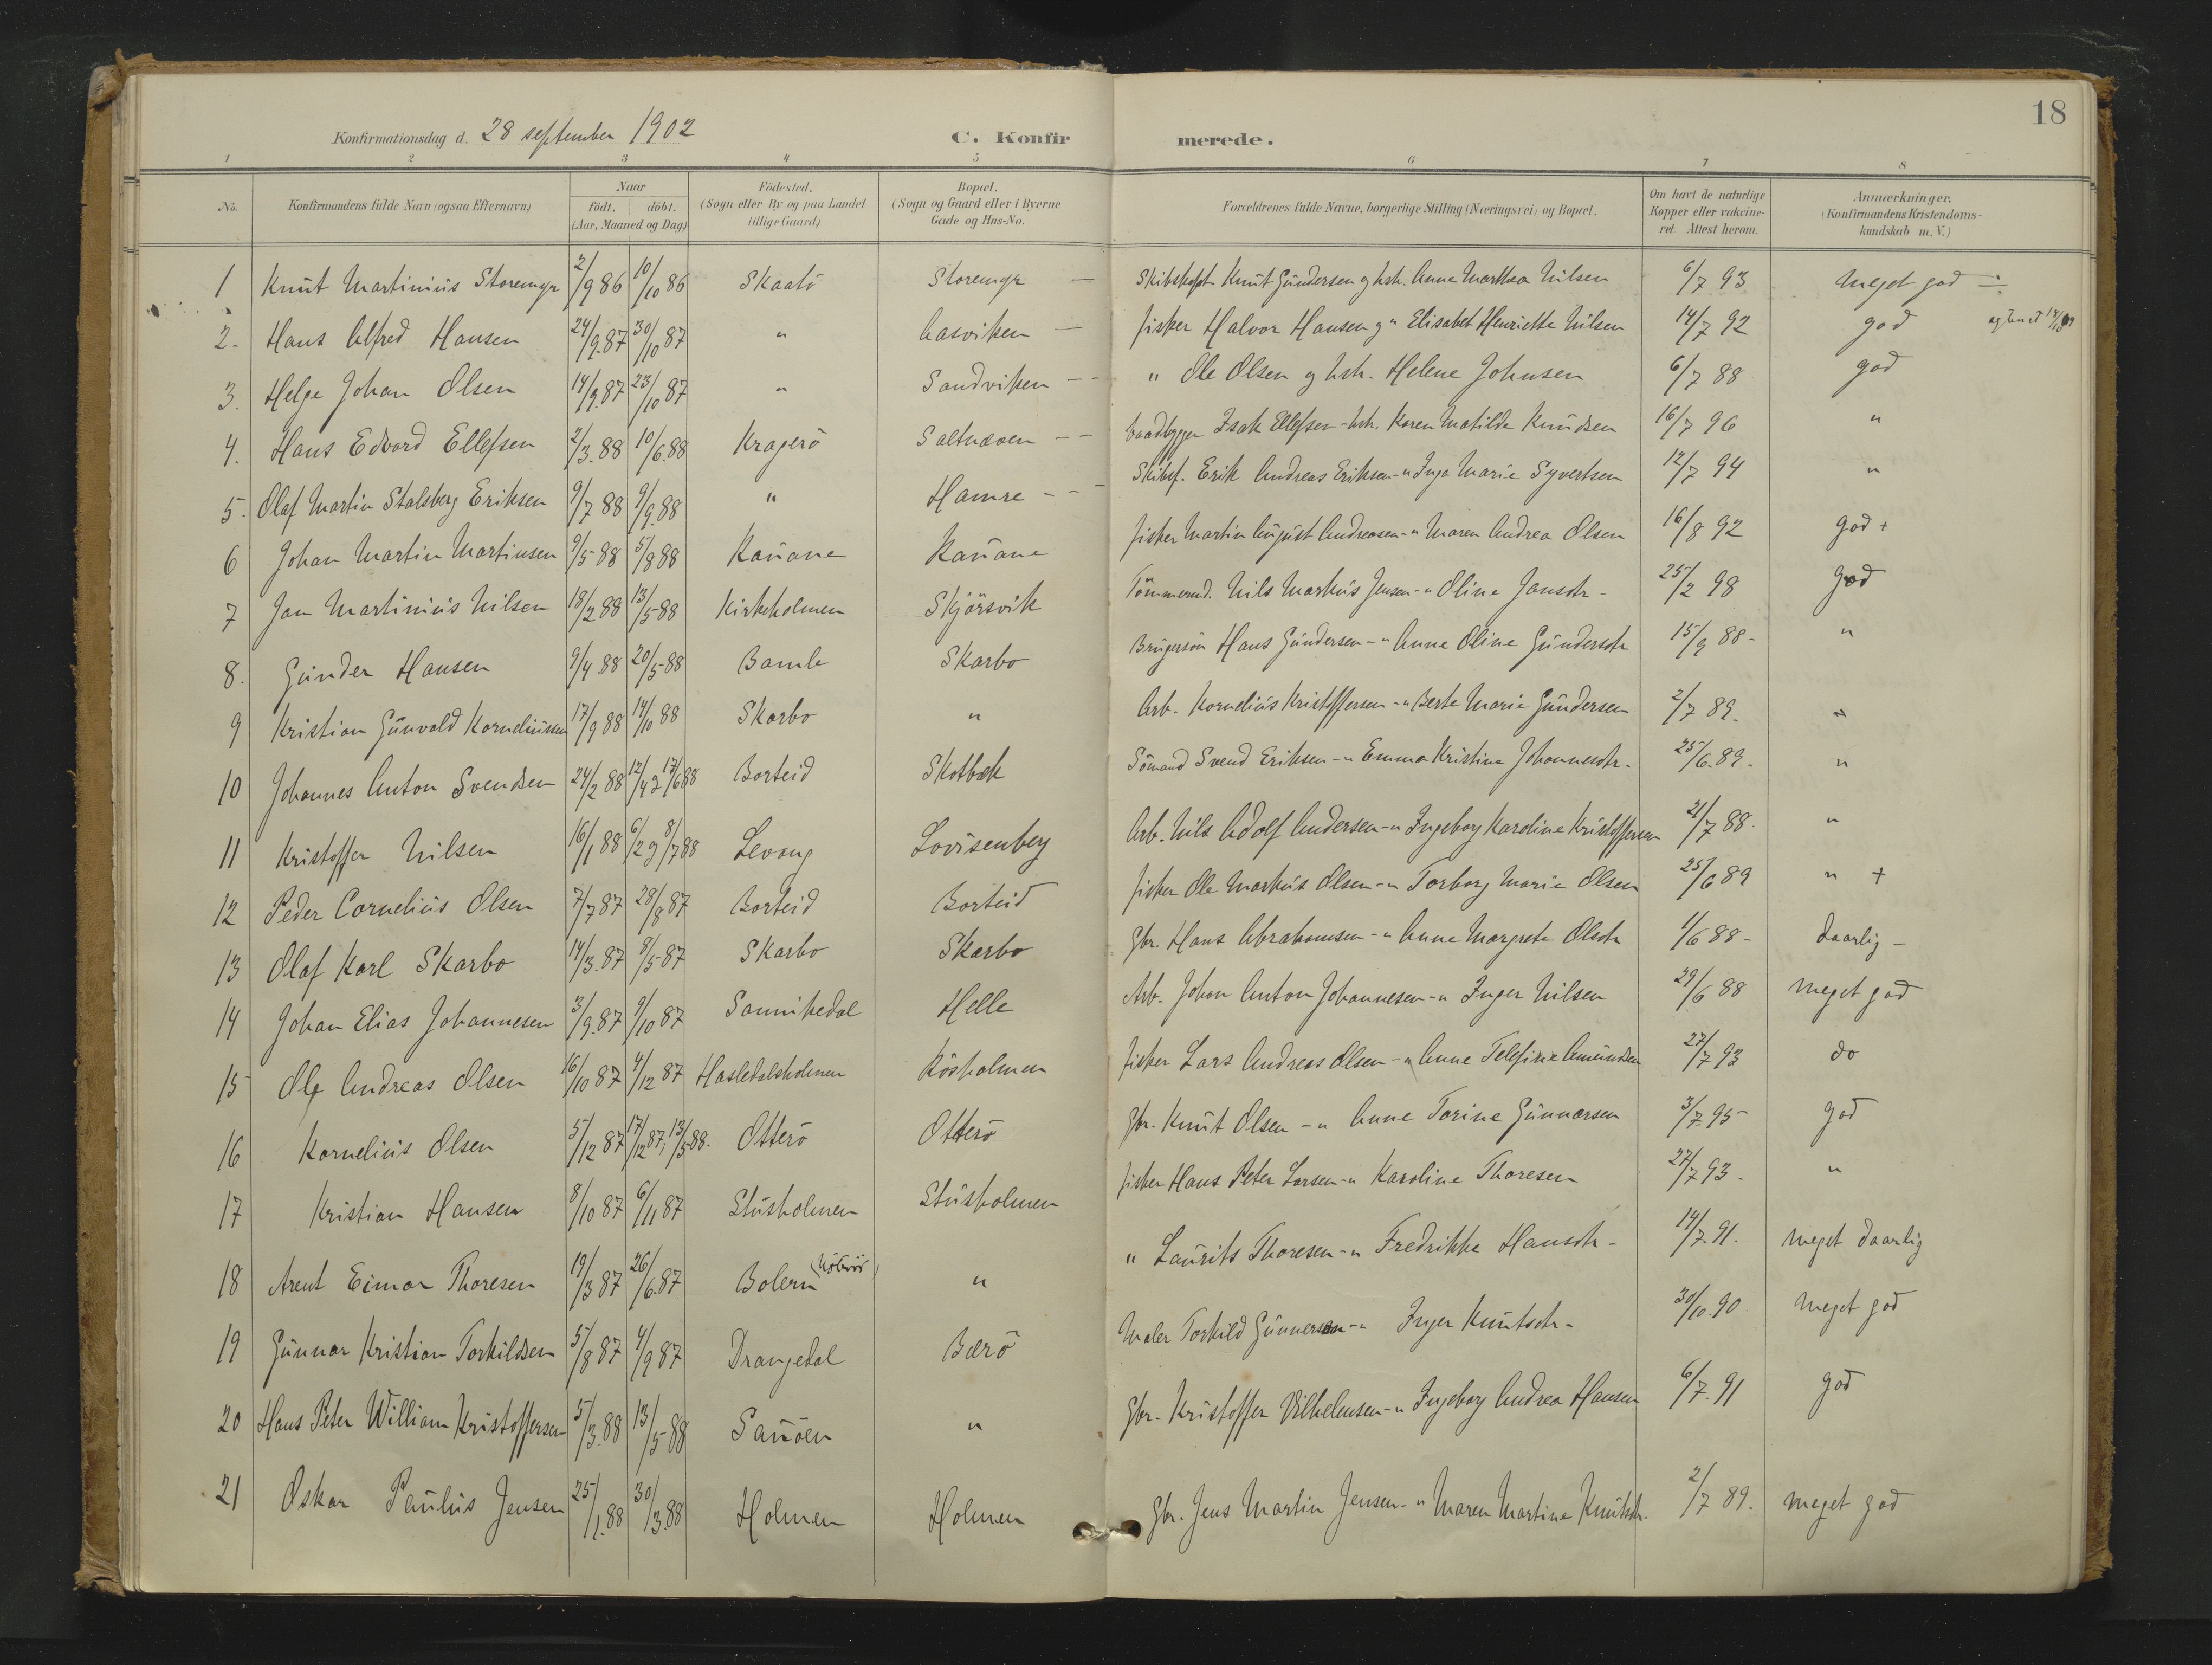 18
Konfirmationsdag d. 28 september 1902
C. Konfirmerede.
1 2 3 4 5 6 7 8
No. Konfirmandens fulde Navn (ogsaa Efternavn) Naar födt. döbt. (Aar, Maaned og Dag) Födested. (Sogn eller By og paa Landet tillige Gaard) Bopæl. (Sogn og Gaard eller i Byerne Gade og Hus-No. Forældrenes fulde Navne, borgerlige Stilling (Næringsvei) og Bopæl. Om havt de naturlige Kopper eller vakcineret. Attest herom. Anmærkninger. (Konfirmandens Kristendomskundskab m. V.)
1 Knut Martinius Storemyr 2/9 86 10/10 86 Skaatö Storemyr — Skibskapt. Knut Gundersen og hstr. Anne Marthea Nilsen 6/7 93 meget god
2. Hans Alfred Hansen 24/9.87 30/10 87 " Aasviken — fisker Halvor Hansen og " Elisabet Henriette Nilsen 14/7 92 god
3. Helge Johan Olsen 14/9.87 23/10 87 " Sandviken -- " Ole Olsen og hstr. Helene Johnsen 6/7 88 god
4. Hans Edvard Ellefsen 2/3.88 10/6.88 Kragerö Saltneven -- baadbygger Isak Ellefsen - hstr. Karen Matilde Knudsen 16/7 96 "
5. Olaf Martin Stalsberg Eriksen 9/7 88 9/9.88 " Hamre -- Skibsf. Erik Andreas Eriksen - " Inga Marie Syvertsen 12/7 94 "
6 Johan Martin Martinsen 9/5 88 5/8 88 Kauane Kauane fisker Martin August Andreasen - " Maren Andrea Olsen 16/8 92 god +
7 Jan Martinius Nilsen 18/2 88 13/5 88 Kirkeholmen Skjörsvik Tömmermd. Nils Markus Jensen - " Oline Jansdtr - 25/2 98 god
8. Gunder Hansen 9/4.88 20/5 88 Bamle Skarbo Brugersön Hans Gundersen - " Anne Oline Gundersdtr 15/9 88 - "
9 Kristian Gunvald Korneliussen 17/9 88 14/10 88 Skarbo " Arb. Kornelius Kristoffersen - " Berte Marie Gundersen 2/7 89. "
10 Johannes Anton Svendsen 24/2 88 12/4 og 17/6 88 Borteid Skotbæk Sömand Svend Eriksen - " Emma Kristine Johannesdtr - 25/6.89. "
11 Kristoffer Nilsen 16/1 88 6/2 og 8/7 88 Levang Lovisenberg Arb. Nils Adolf Andersen - " Ingeborg Karoline Kristoffersen 21/7 88. "
12 Peder Cornelius Olsen 7/7 87 28/8 87 Borteid Borteid fisker Ole Markus Olsen - " Torborg Marie Olsen 25/6 89 " +
13 Olaf Karl Skarbo 14/3.87 8/5 87 Skarbo Skarbo Gbr. Hans Abrahamsen - " Anne Margrete Olsdtr 1/6 88 - daarlig -
14 Johan Elias Johannesen 3/9.87 9/10 87 Sannikedal Helle Arb. Johan Anton Johannesen - " Inger Nilsen 29/6 88 meget god
15 Ole Andreas Olsen 16/10 87 4/12 87 Hasledalsholmen Kösholmen fisker Lars Andreas Olsen - " Anne Telefine Amundsen 27/7 93 do
16 Kornelius Olsen 5/12 87 17/12 87, 13/5 88. Otterö Otterö Gbr. Knut Olsen - " Anne Torine Gunnarsen 3/7.95 god
17 Kristian Hansen 8/10 87 6/11 87 Stusholmen Stusholmen fisker Hans Peter Larsen - " Karoline Thoresen 27/7 93. "
18 Arent Eimar Thoresen 19/3 87 26/6.87 Bolern " " Laurits Thoresen - " Fredrikke Hansdtr - 14/7.91. meget daarlig
19 Gunnar Kristian Torkildsen 5/8 87 4/9 87 Drangedal Bærö Maler Torkild Gunnersen - " Inger Knutsdtr - 30/10.90 meget god
20 Hans Peter William Kristoffersen 5/3.88 13/5 88 Sauöen " Gbr. Kristoffer Vilhelmsen - " Ingeborg Andrea Hansen 6/7.91 god
21 Oskar Paulus Jensen 25/1.88 30/3.88 Holmen Holmen Gbr. Jens Martin Jensen - " Maren Martine Knutsdtr. 2/7 89. meget god